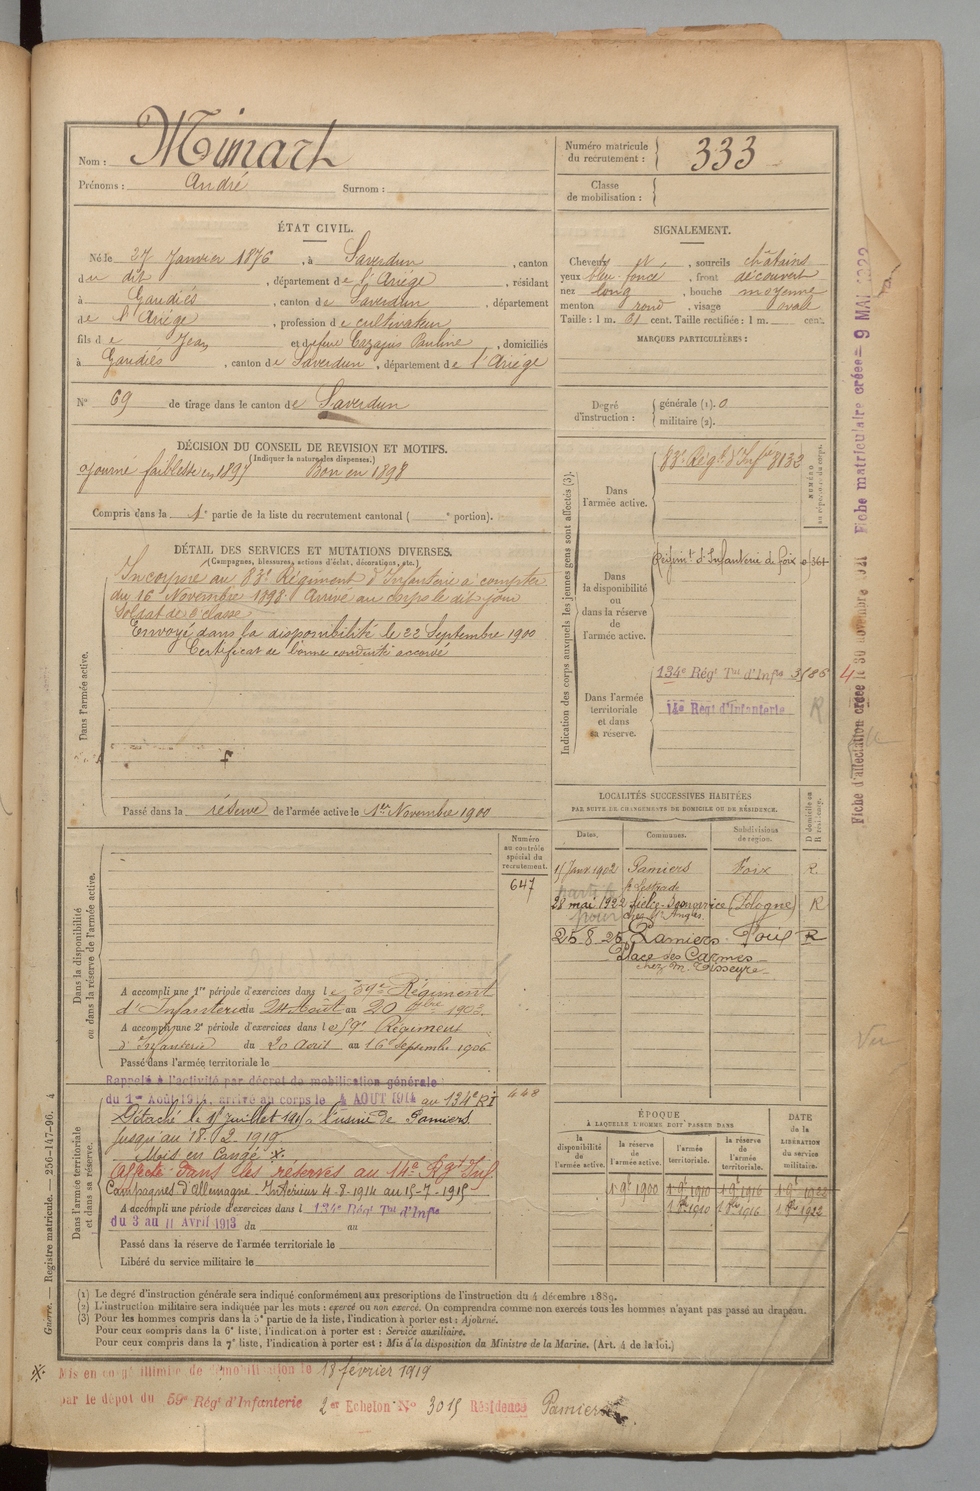 Nom : Minart
Prénoms : André Surnom :
Numéro matricule du recrutement : 333
Classe de mobilisation :
ÉTAT CIVIL.
Né le 27 Janvier 1876, à Saverdun, canton
du dit, département de l'Ariége, résidant
à Gaudiés, canton de Saverdun, département
de l'Ariége, profession de cultivateur
fils de Jean et de feue Cazajus Pauline, domiciliés
à Gaudiés, canton de Saverdun, département de l'Ariége
N° 69 de tirage dans le canton de Saverdun
SIGNALEMENT.
Cheveux et, sourcils châtains
yeux bleu foncé, front découvert
nez long, bouche moyenne
menton rond, visage ovale
Taille : 1 m. 61 cent. Taille rectifiée : 1 m. cent.
MARQUES PARTICULIÈRES :
Degré d'instruction : générale (1). 0
militaire (2).
DÉCISION DU CONSEIL DE REVISION ET MOTIFS.
(Indiquer la nature des dispenses.)
ajourné faiblesse en 1897 Bon en 1898
Compris dans la 1e partie de la liste du recrutement cantonal ( e portion).
DÉTAIL DES SERVICES ET MUTATIONS DIVERSES.
(Campagnes, blessures, actions d'éclat, décorations, etc.)
Dans l'armée active.
Incorporé au 83e Régiment d'Infanterie à compter
du 16 Novembre 1898. Arrivé au corps le dit jour
Soldat de 2e classe
Envoyé dans la disponibilité le 22 Septembre 1900
Certificat de bonne conduite accordé
Passé dans la réserve de l'armée active le 1er Novembre 1900
Indication des corps auxquels les jeunes gens sont affectés (3).
Dans l'armée active.
83e Régt d'Infie 8133
NUMÉRO au répertoire du corps.
Dans la disponibilité ou dans la réserve de l'armée active.
Régimt d'Infanterie de foix 0/361
Dans l'armée territoriale et dans sa réserve.
134e Régt Tal d'Infie 3586 4
14e Régt d'Infanterie R
LOCALITÉS SUCCESSIVES HABITÉES
PAR SUITE DE CHANGEMENTS DE DOMICILE OU DE RÉSIDENCE.
Dates. Communes. Subdivisions de région. D domicile ou R résidence.
15 Janv 1902 Pamiers Foix R.
28 mai 1922 R
pour
25-8-25 Pamiers Foix R
Place des Carmes
chez M. Tisseyre
Numéro au contrôle spécial du recrutement.
647
Dans la disponibilité ou dans la réserve de l'armée active.
A accompli une 1re période d'exercices dans le 59e Régiment
d'Infanterie du 24 Août au 20 7bre 1903.
A accompli une 2e période d'exercices dans le 59e Régiment
d'Infanterie du 20 Août au 16 Septembre 1906
Passé dans l'armée territoriale le
Dans l'armée territoriale et dans sa réserve.
Rappelé à l'activité par décret de mobilisation générale
du 1er Août 1914, arrivé au corps le 4 AOUT 1914 au 134e RI 448
Détaché le 15 juillet 1915 à l'usine de Pamiers
jusqu'au 18.2.1919
Mis en Congé ※
Affecté dans les réserves au 14e Rgt Inf.
Campagnes d'Allemagne. Intérieur 4-8-1914 au 15-7-1915
A accompli une période d'exercices dans l 134e Régt Tal d'Infie
du 3 au 11 Avril 1913 du au
Passé dans la réserve de l'armée territoriale le
Libéré du service militaire le
ÉPOQUE
À LAQUELLE L'HOMME DOIT PASSER DANS
la disponibilité de l'armée active. la réserve de l'armée active. l'armée territoriale. la réserve de l'armée territoriale. DATE DE LA LIBÉRATION du service militaire.
1 9bre 1900 1 9bre 1910 1 9bre 1916 1 9bre 1922
1 8bre 1910 1 8bre 1916 1 8bre 1922
(1) Le degré d'instruction générale sera indiqué conformément aux prescriptions de l'instruction du 4 décembre 1889.
(2) L'instruction militaire sera indiquée par les mots : exercé ou non exercé. On comprendra comme non exercés tous les hommes n'ayant pas passé au drapeau.
(3) Pour les hommes compris dans la 5e partie de la liste, l'indication à porter est : Ajourné.
Pour ceux compris dans la 6e liste, l'indication à porter est : Service auxiliaire.
Pour ceux compris dans la 7e liste, l'indication à porter est : Mis à la disposition du Ministre de la Marine. (Art. 4 de la loi.)
※ Mis en congé illimité de démobilisation le 18 février 1919
par le dépôt du 59e Régt d'Infanterie 2e Echelon N° 3015 Résidence Pamiers
Guerre. — Registre matricule. — 256-147-96. 4
Fiche d'affectation créée le 30 novembre 1921 Fiche matriculaire créée = 9 MAI 1922